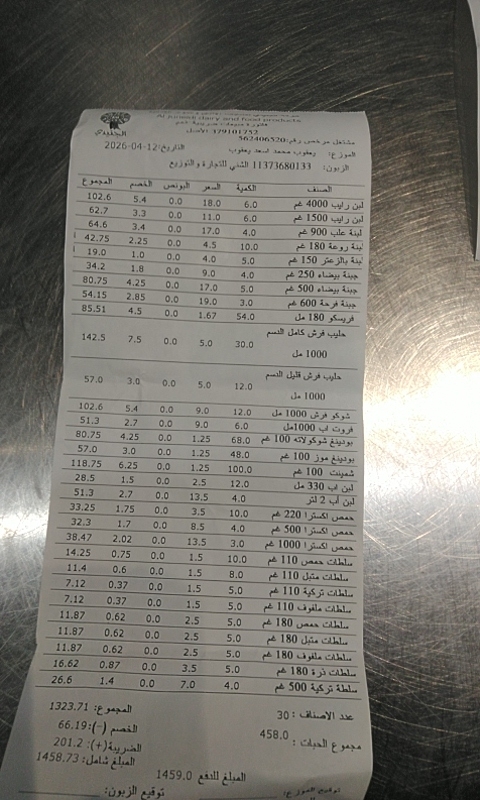 الجنيدي
Al juneidi dairy and food products
379101752 الأصل
مشتغل مرخص رقم: 562406520
الموزع: يعقوب محمد اسعد يعقوب التاريخ: 2026-04-12
الزبون: 11373680133 الشني للتجارة والتوزيع
الصنف الكمية السعر البونص الخصم المجموع
لبن رايب 4000 غم 6.0 18.0 0.0 5.4 102.6
لبن رايب 1500 غم 6.0 11.0 0.0 3.3 62.7
لبنة علب 900 غم 4.0 17.0 0.0 3.4 64.6
لبنة روعة 180 غم 10.0 4.5 0.0 2.25 42.75
لبنة بالزعتر 150 غم 5.0 4.0 0.0 1.0 19.0
جبنة بيضاء 250 غم 4.0 9.0 0.0 1.8 34.2
جبنة بيضاء 500 غم 5.0 17.0 0.0 4.25 80.75
جبنة فرحة 600 غم 3.0 19.0 0.0 2.85 54.15
فريسكو 180 مل 54.0 1.67 0.0 4.5 85.51
حليب فرش كامل الدسم 1000 مل 30.0 5.0 0.0 7.5 142.5
حليب فرش قليل الدسم 1000 مل 12.0 5.0 0.0 3.0 57.0
شوكو فرش 1000 مل 12.0 9.0 0.0 5.4 102.6
فروت اب 1000مل 6.0 9.0 0.0 2.7 51.3
بودينغ شوكولاته 100 غم 68.0 1.25 0.0 4.25 80.75
بودينغ موز 100 غم 48.0 1.25 0.0 3.0 57.0
شمينت 100 غم 100.0 1.25 0.0 6.25 118.75
لبن اب 330 مل 12.0 2.5 0.0 1.5 28.5
لبن أب 2 لتر 4.0 13.5 0.0 2.7 51.3
حمص اكسترا 220 غم 10.0 3.5 0.0 1.75 33.25
حمص اكسترا 500 غم 4.0 8.5 0.0 1.7 32.3
حمص اكسترا 1000 غم 3.0 13.5 0.0 2.02 38.47
سلطات حمص 110 غم 10.0 1.5 0.0 0.75 14.25
سلطات متبل 110 غم 8.0 1.5 0.0 0.6 11.4
سلطات تركية 110 غم 5.0 1.5 0.0 0.37 7.12
سلطات ملفوف 110 غم 5.0 1.5 0.0 0.37 7.12
سلطات حمص 180 غم 5.0 2.5 0.0 0.62 11.87
سلطات متبل 180 غم 5.0 2.5 0.0 0.62 11.87
سلطات ملفوف 180 غم 5.0 2.5 0.0 0.62 11.87
سلطات ذرة 180 غم 5.0 3.5 0.0 0.87 16.62
سلطة تركية 500 غم 4.0 7.0 0.0 1.4 26.6
عدد الاصناف : 30 المجموع: 1323.71
مجموع الحبات : 458.0 الخصم (-): 66.19
الضريبة(+): 201.2
المبلغ شامل: 1458.73
المبلغ للدفع 1459.0
توقيع الموزع: توقيع الزبون: